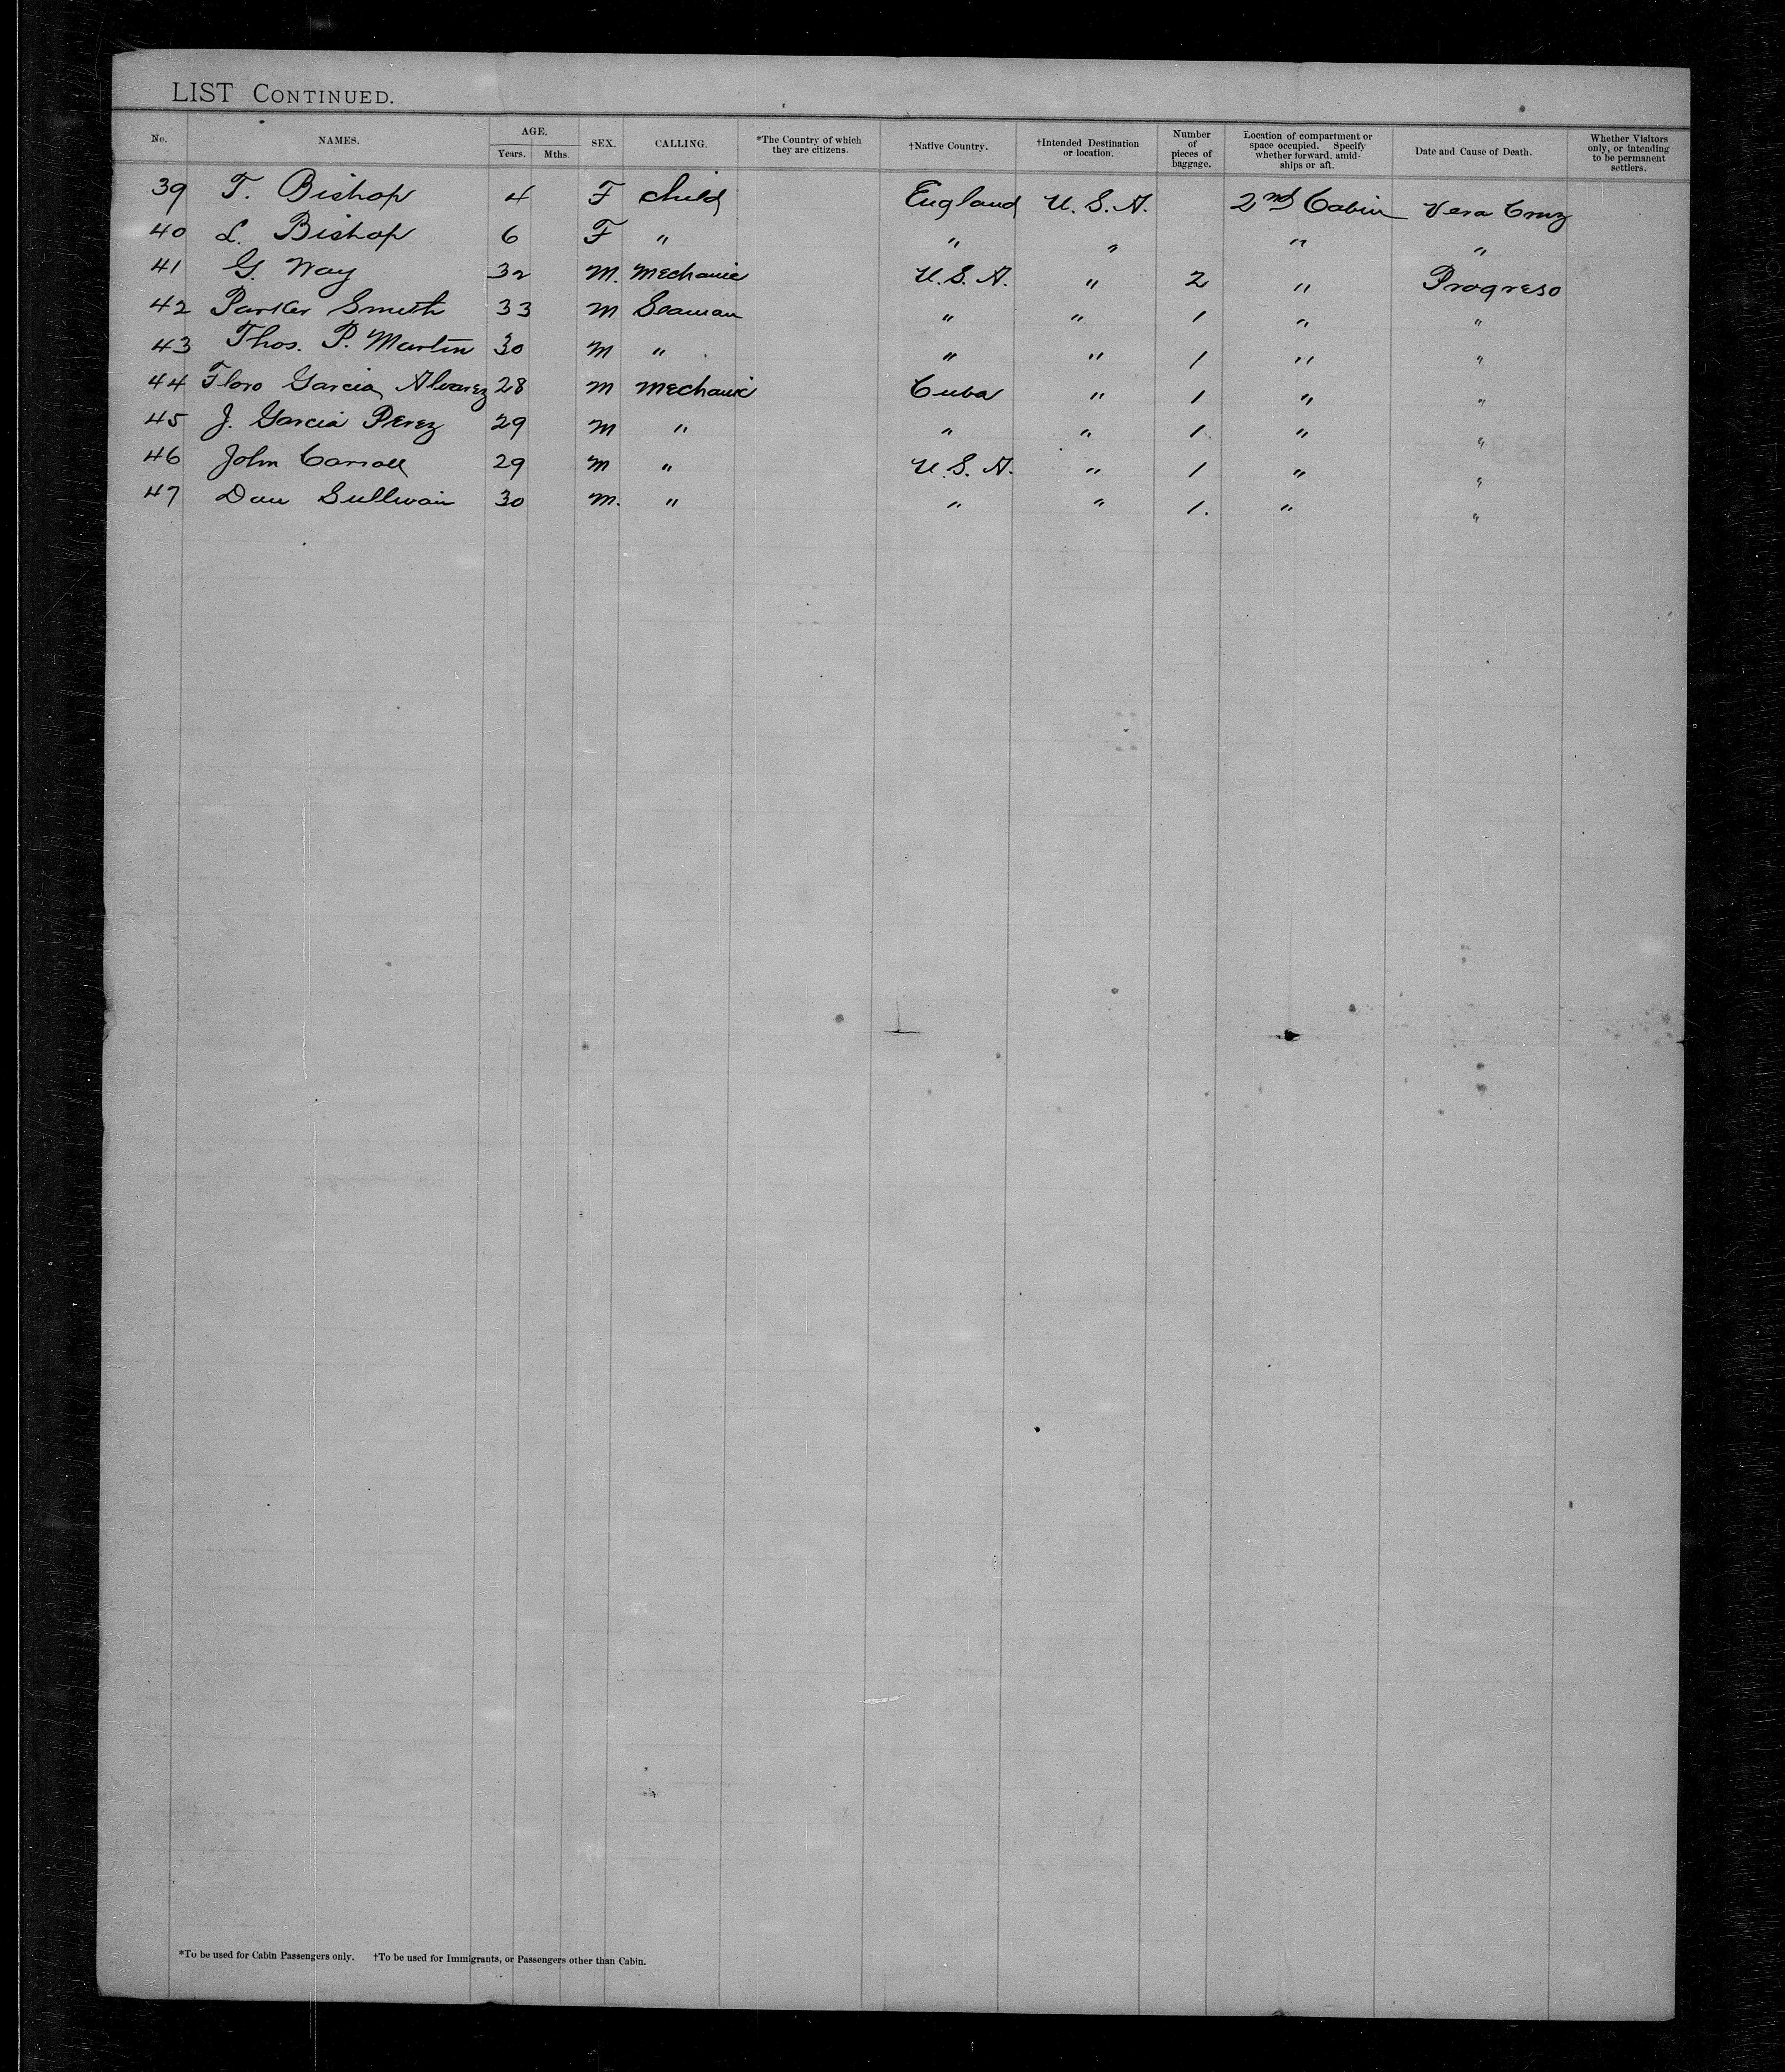 LIST CONTINUED.
No. NAMES. AGE. Years. Mths. SEX. CALLING. *The Country of which they are citizens. †Native Country. †Intended Destination or location. Number of pieces of baggage. Location of compartment or space occupied. Specify whether forward, amid-ships or aft. Date and Cause of Death. Whether Visitors only, or intending to be permanent settlers.
39 T. Bishop 4 F child England U.S.A. 2nd Cabin Vera Cruz
40 L. Bishop 6 F " " " " "
41 G. Way 32 M. Mechanic U.S.A. " 2 " Progreso
42 Parker Smith 33 M Seaman " " 1 " "
43 Thos. P. Martin 30 M " " " 1 " "
44 Floro Garcia Alvarez 28 M Mechanic Cuba " 1 " "
45 J. Garcia Perez 29 M " " " 1 " "
46 John Carroll 29 M " U.S.A. " 1 " "
47 Dan Sullivan 30 M. " " " 1. " "
*To be used for Cabin Passengers only. †To be used for Immigrants, or Passengers other than Cabin.